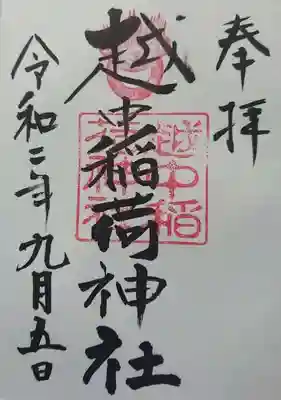 奉拝
越中稲荷神社
越中稲荷神社
令和二年九月五日